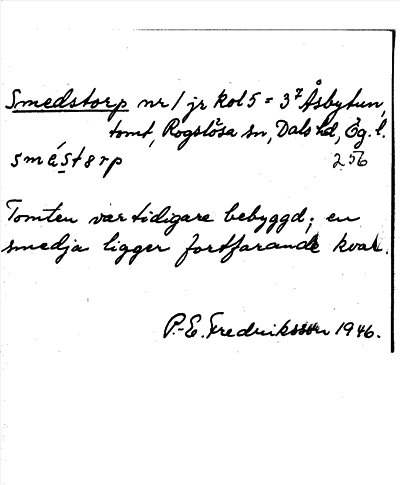 Smedstorp nr 1 jr kol 5 = 3⁷ Åsbytun,
tomt, Rogslösa sn, Dals hd, Ög. l.
smést8rp 256
Tomten var tidigare bebyggd; en
smedja ligger fortfarande kvar.
P.-E. Fredriksson 1946.